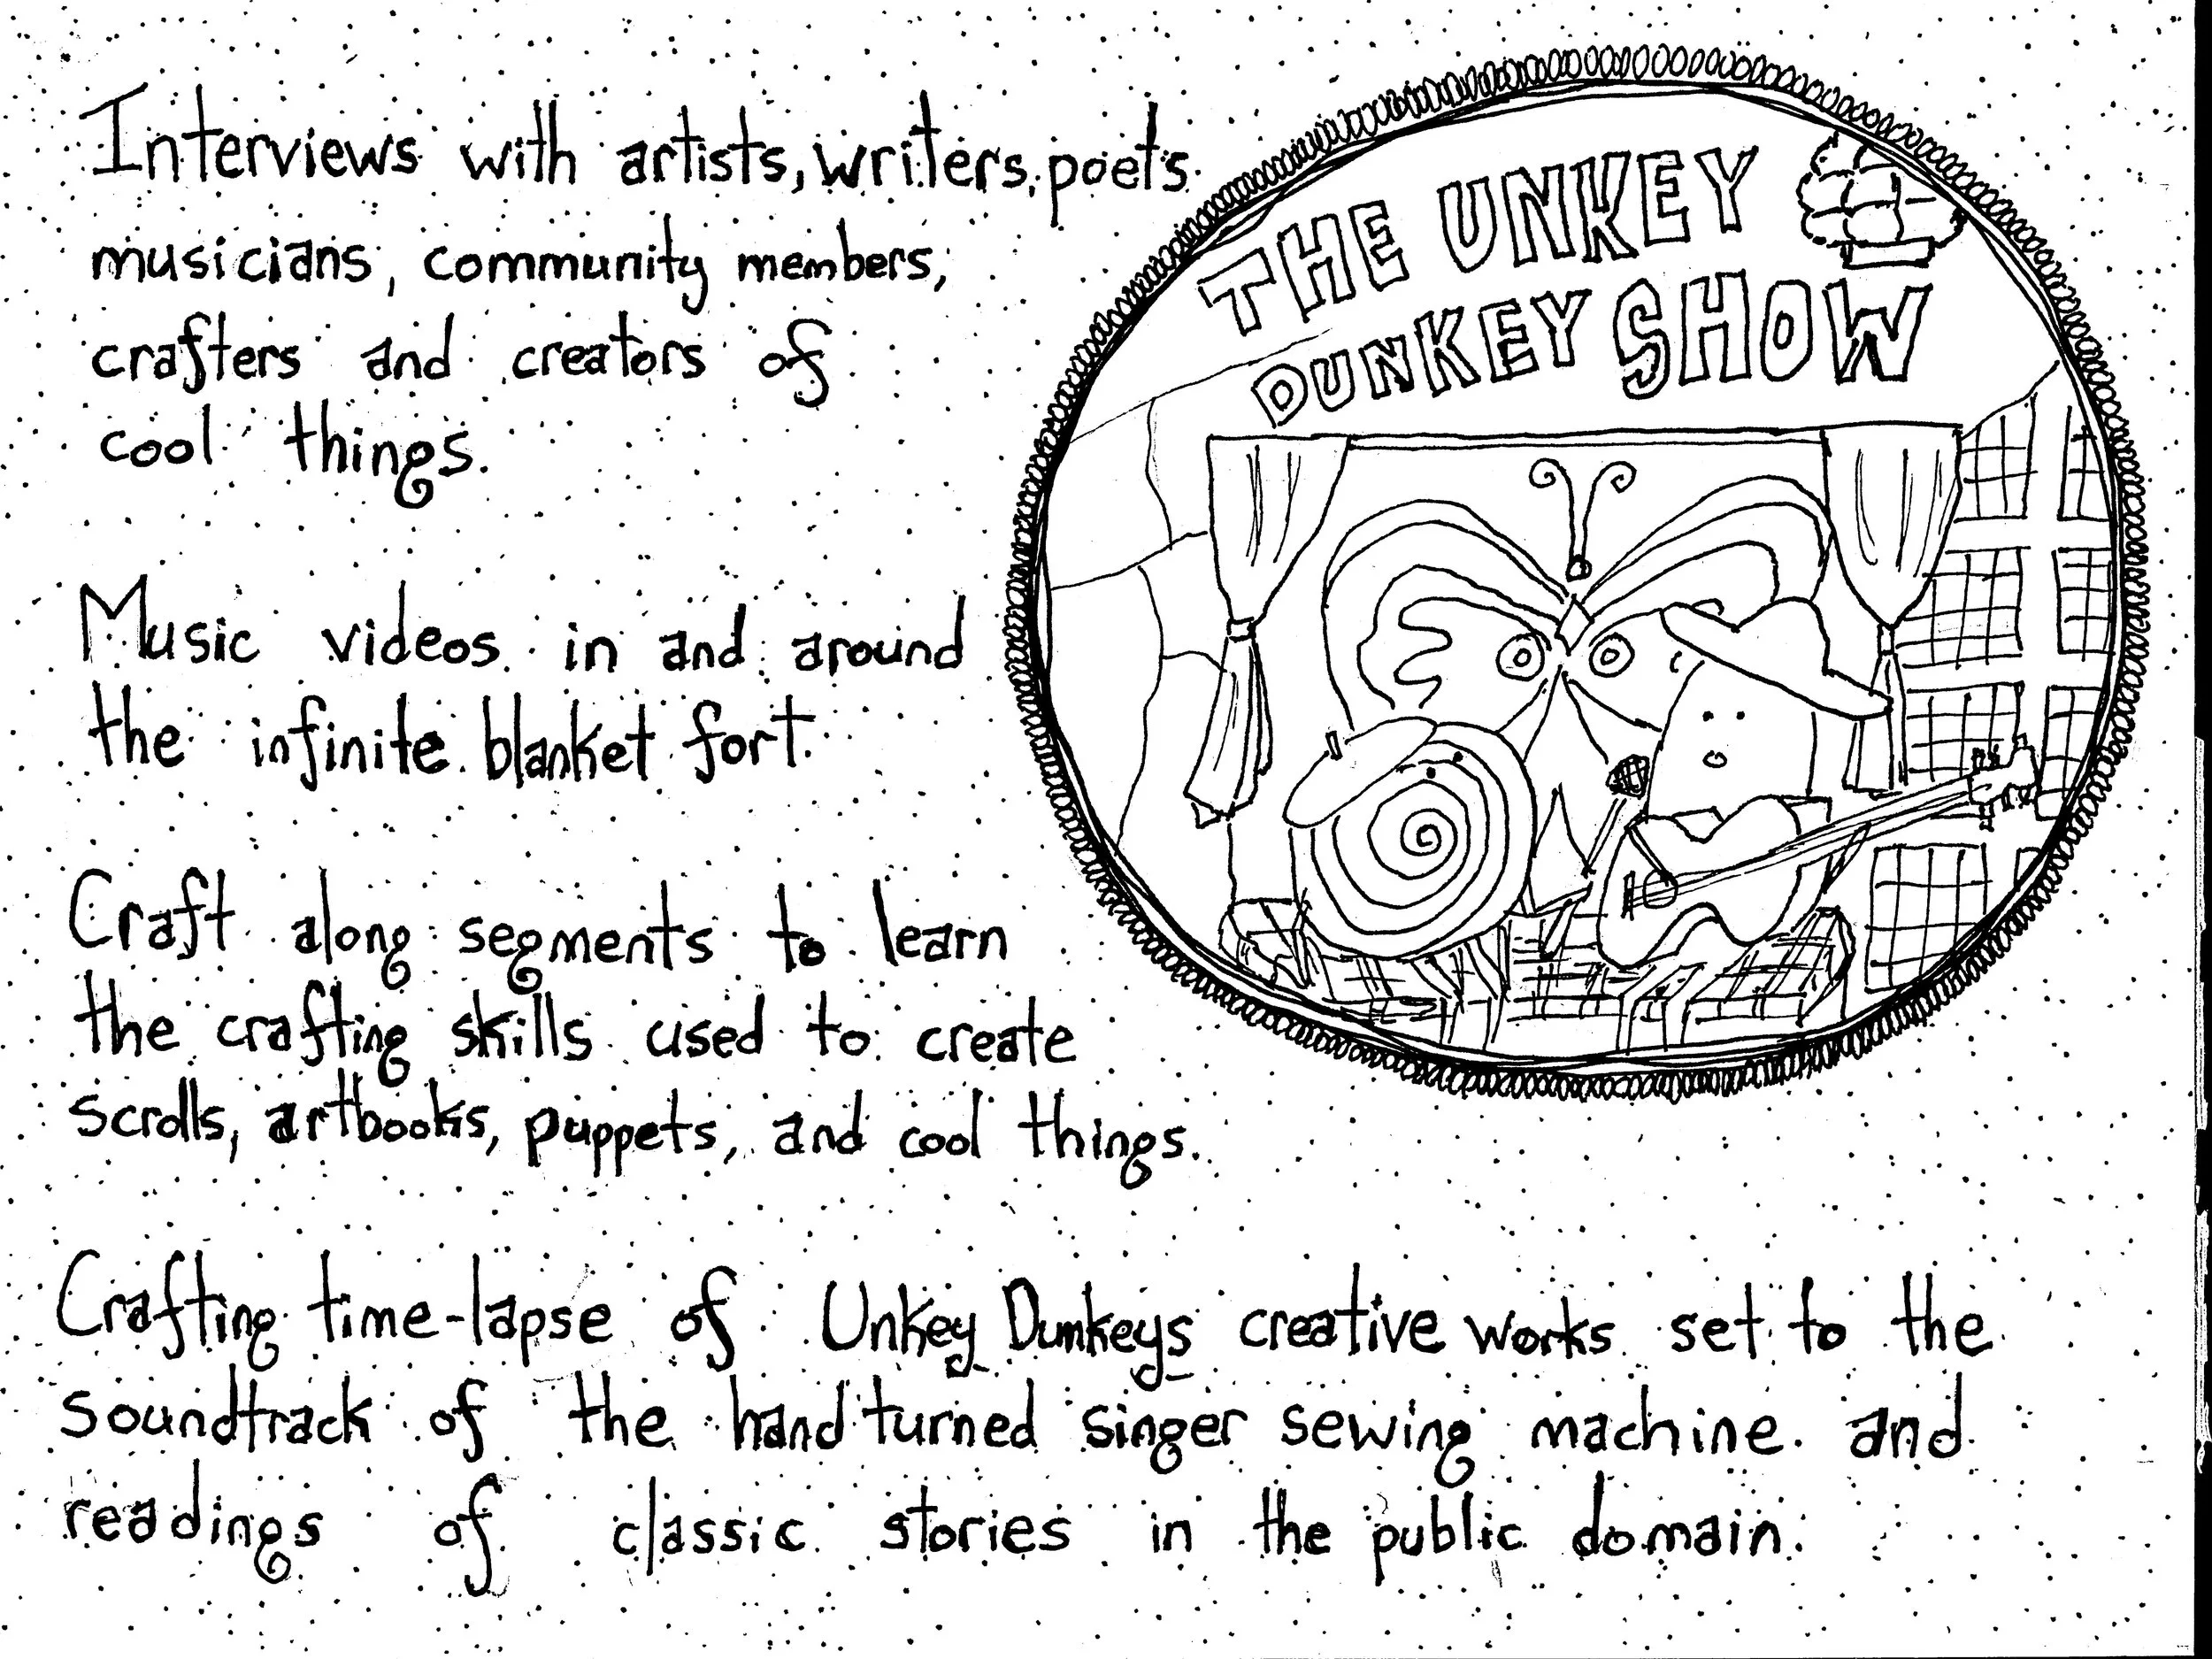 Interviews with artists, writers, poets
musicians, community members,
crafters and creators of
cool things.
THE UNKEY
DUNKEY SHOW
Music videos in and around
the infinite blanket fort.
Craft along segments to learn
the crafting skills used to create
scrolls, artbooks, puppets, and cool things.
Crafting time-lapse of Unkey Dunkeys creative works set to the
soundtrack of the hand turned singer sewing machine and
readings of classic stories in the public domain.